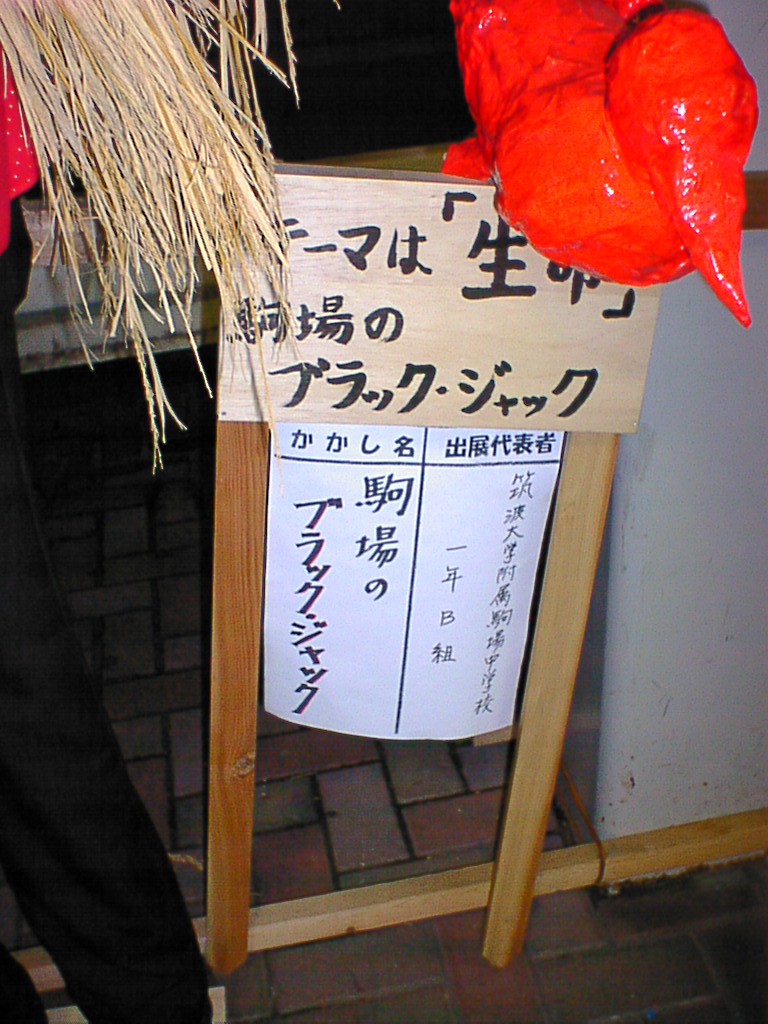 テーマは「生命」
駒場の
ブラック・ジャック
出展代表者
筑波大学附属駒場中学校
一年B組
かかし名
駒場の
ブラック・ジャック